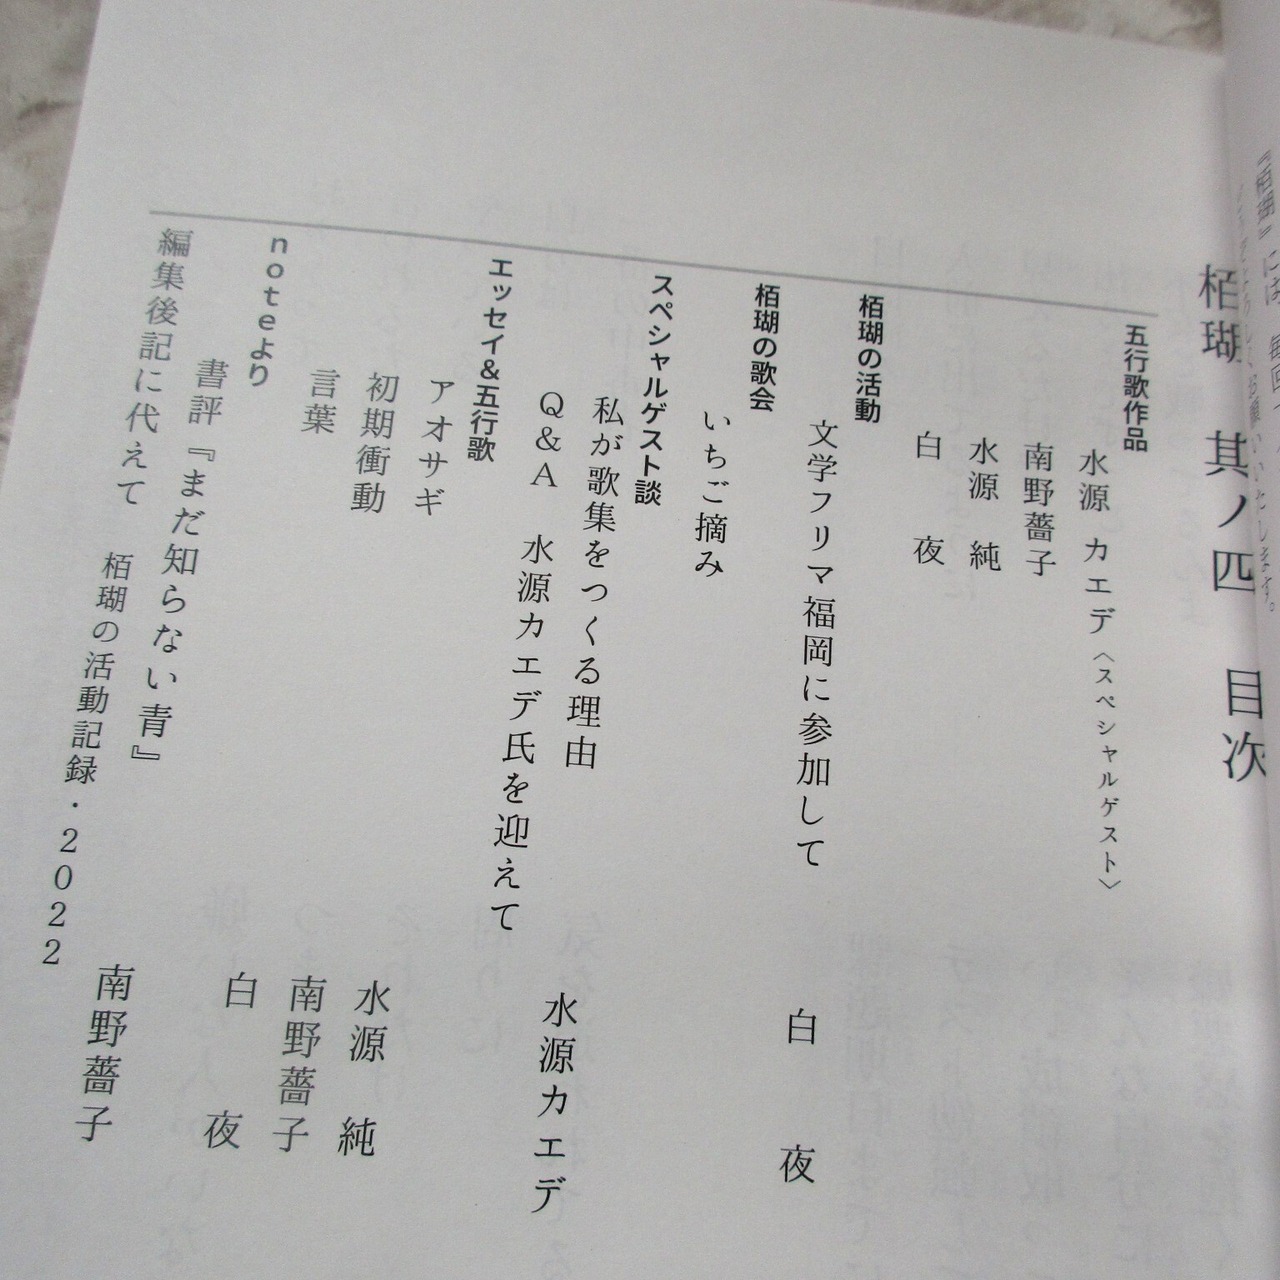 『栢瑚』には、毎回
お願いいたします。
栢瑚 其ノ四 目次
五行歌作品
水源 カエデ〈スペシャルゲスト〉
南野薔子
水源 純
白 夜
栢瑚の活動
文学フリマ福岡に参加して 白 夜
栢瑚の歌会
いちご摘み
スペシャルゲスト談
私が歌集をつくる理由 水源カエデ
Q&A 水源カエデ氏を迎えて
エッセイ&五行歌
アオサギ 水源 純
初期衝動 南野薔子
言葉 白 夜
noteより
書評『まだ知らない青』 南野薔子
編集後記に代えて 栢瑚の活動記録・2022